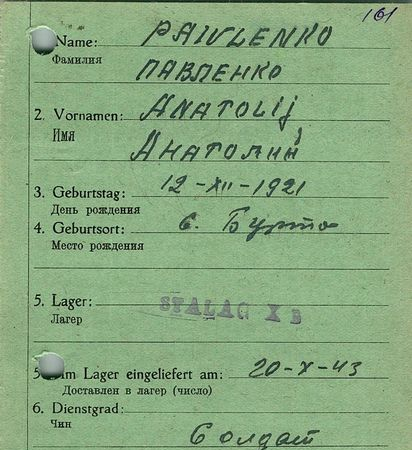 161
Name: PAWLENKO
Фамилия ПАВЛЕНКО
2. Vornamen: ANATOLIJ
Имя Анатолий
3. Geburtstag: 12-XII-1921
День рождения
4. Geburtsort: с. Бурта
Место рождения
5. Lager: STALAG X B
Лагер
Im Lager eingeliefert am: 20-X-43
Доставлен в лагер (число)
6. Dienstgrad:
Чин Солдат